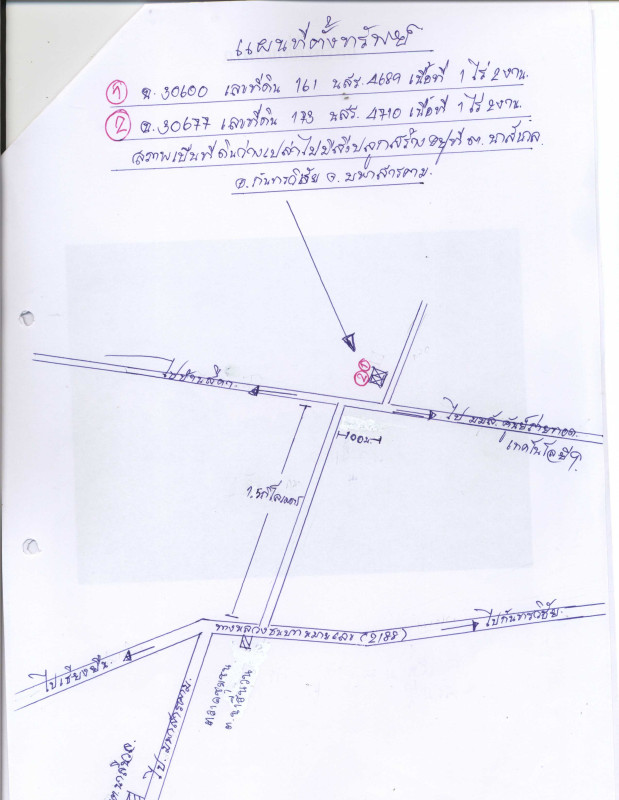 แผนที่ตั้งทรัพย์
① ฉ.30600 เลขที่ดิน 161 นสร.4689 เนื้อที่ 1 ไร่ 2 งาน.
② ฉ.30677 เลขที่ดิน 173 นสร.4710 เนื้อที่ 1 ไร่ 2 งาน.
สภาพเป็นที่ดินว่างเปล่าไม่มีสิ่งปลูกสร้าง อยู่ที่ ต.
อ.กันทรวิชัย จ.มหาสารคาม.
②①
ไปบ้าน
ไป มมส. ศูนย์ถ่ายทอด
เทคโนโลยีฯ
100ม.
กิโลเมตร
ทางหลวงชนบทหมายเลข (2188)
ไปกันทรวิชัย.
ไปเชียงยืน.
ตลาดชุมชน
ต.นาสีนวน
ไป.มหาสารคาม.